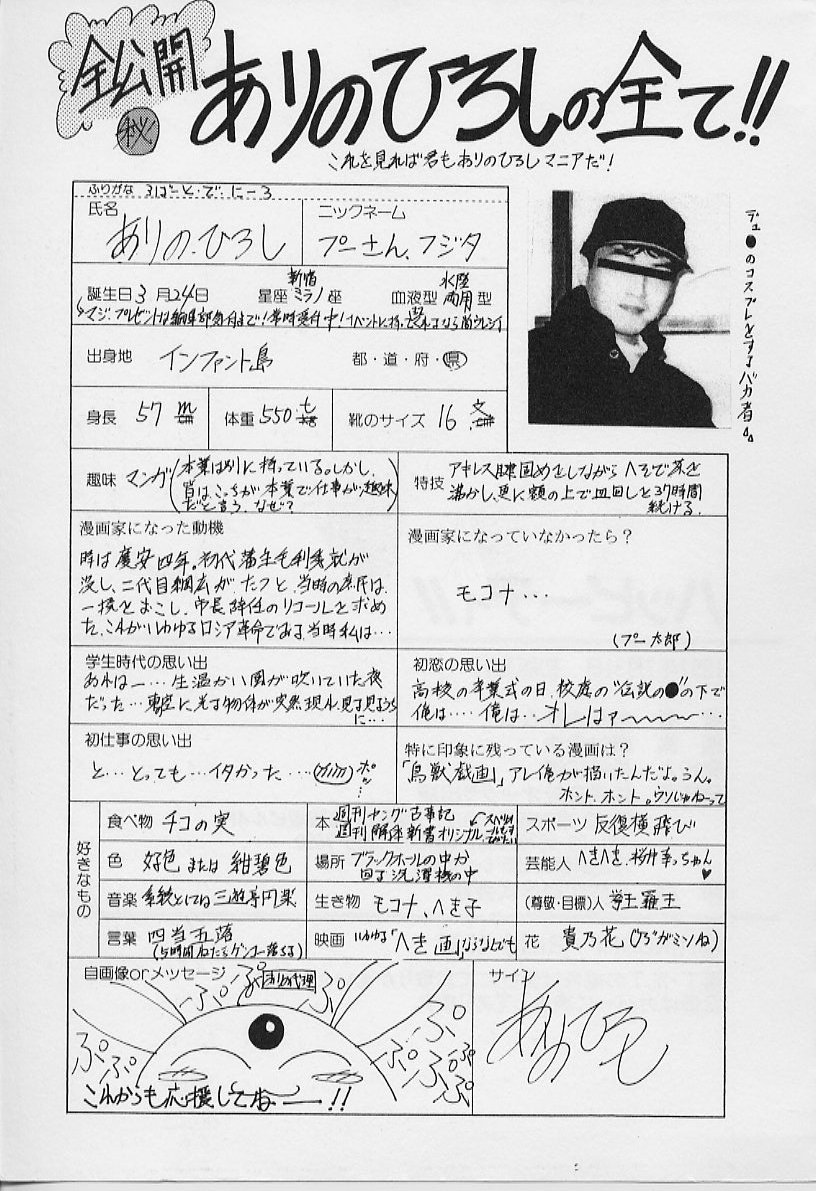 全公開
㊙
ありのひろしの全て!!
これを見れば君もありのひろしマニアだ!
ふりがな ろばーと・で・にーろ
氏名
ありの.ひろし
ニックネーム
プーさん、フジタ
誕生日 3月24日
星座 新宿ミラノ座
血液型 水陸両用型
出身地 インファント島
都・道・府・県
身長 57 m
体重 550 t
靴のサイズ 16 文
デュ●のコスプレをするバカ者
趣味 マンガ(本業は別に持っている。しかし、
皆はこっちが本業で仕事が趣味
だと言う、なぜ?)
特技 アキレス腱固めをしながらへそで茶を
沸かし、更に額の上で皿回しを37時間
続ける.
漫画家になった動機
時は慶安四年。初代藩主毛利秀就が
没し、二代目綱広がたつと、当時の庶民は、
一揆をおこし、市長辞任のリコールを求め
た、これがいわゆるロシア革命である、当時私は…
漫画家になっていなかったら?
モコナ…
(プー太郎)
学生時代の思い出
あれはー…生温かい風が吹いていた夜
だった…東空に光る物体が突然現れ、見る見るうち
に…
初恋の思い出
高校の卒業式の日、校庭の"伝説の●"の下で
俺は…. 俺は…オレはァ〜〜〜…
初仕事の思い出
と…とっても…イタかった…(ガガガ) ポッ…
特に印象に残っている漫画は?
「鳥獣戯画」アレ俺が描いたんだよ。うん。
ホント、ホント。ウソじゃねーって
好きなもの
食べ物 チコの実
本 週刊ヤング古事記
週刊解体新書オリジナル
スポーツ 反復横飛び
色 好色または紺碧色
場所 ブラックホールの中か
回る洗濯機の中
芸能人 へきへき、桜井幸っちゃん♥
音楽 系統としては三遊亭円楽
生き物 モコナ、へき子
(尊敬・目標)人 拳王羅王
言葉 四当五落
(5時間ねたらゲンコー落ちる)
映画 いわゆる「へき画」ならなんでも
花 貴乃花(ひろがミソね)
自画像orメッセージ
ありの代理
ぷぷぷ
ぷぷ
ぷぷ
ぷ
ぷぷ
ぷぷ
これからも応援してねー!!
サイン
ありのひろし